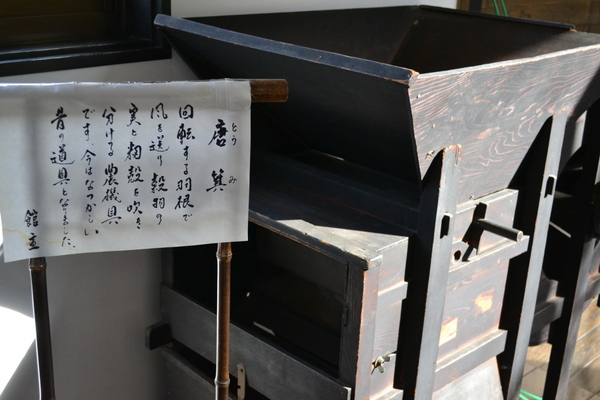 唐箕
とうみ
回転する羽根で
風を送り穀物の
実と籾殻を吹き
分ける農機具
です。今はなつかしい
昔の道具となりました。
館主